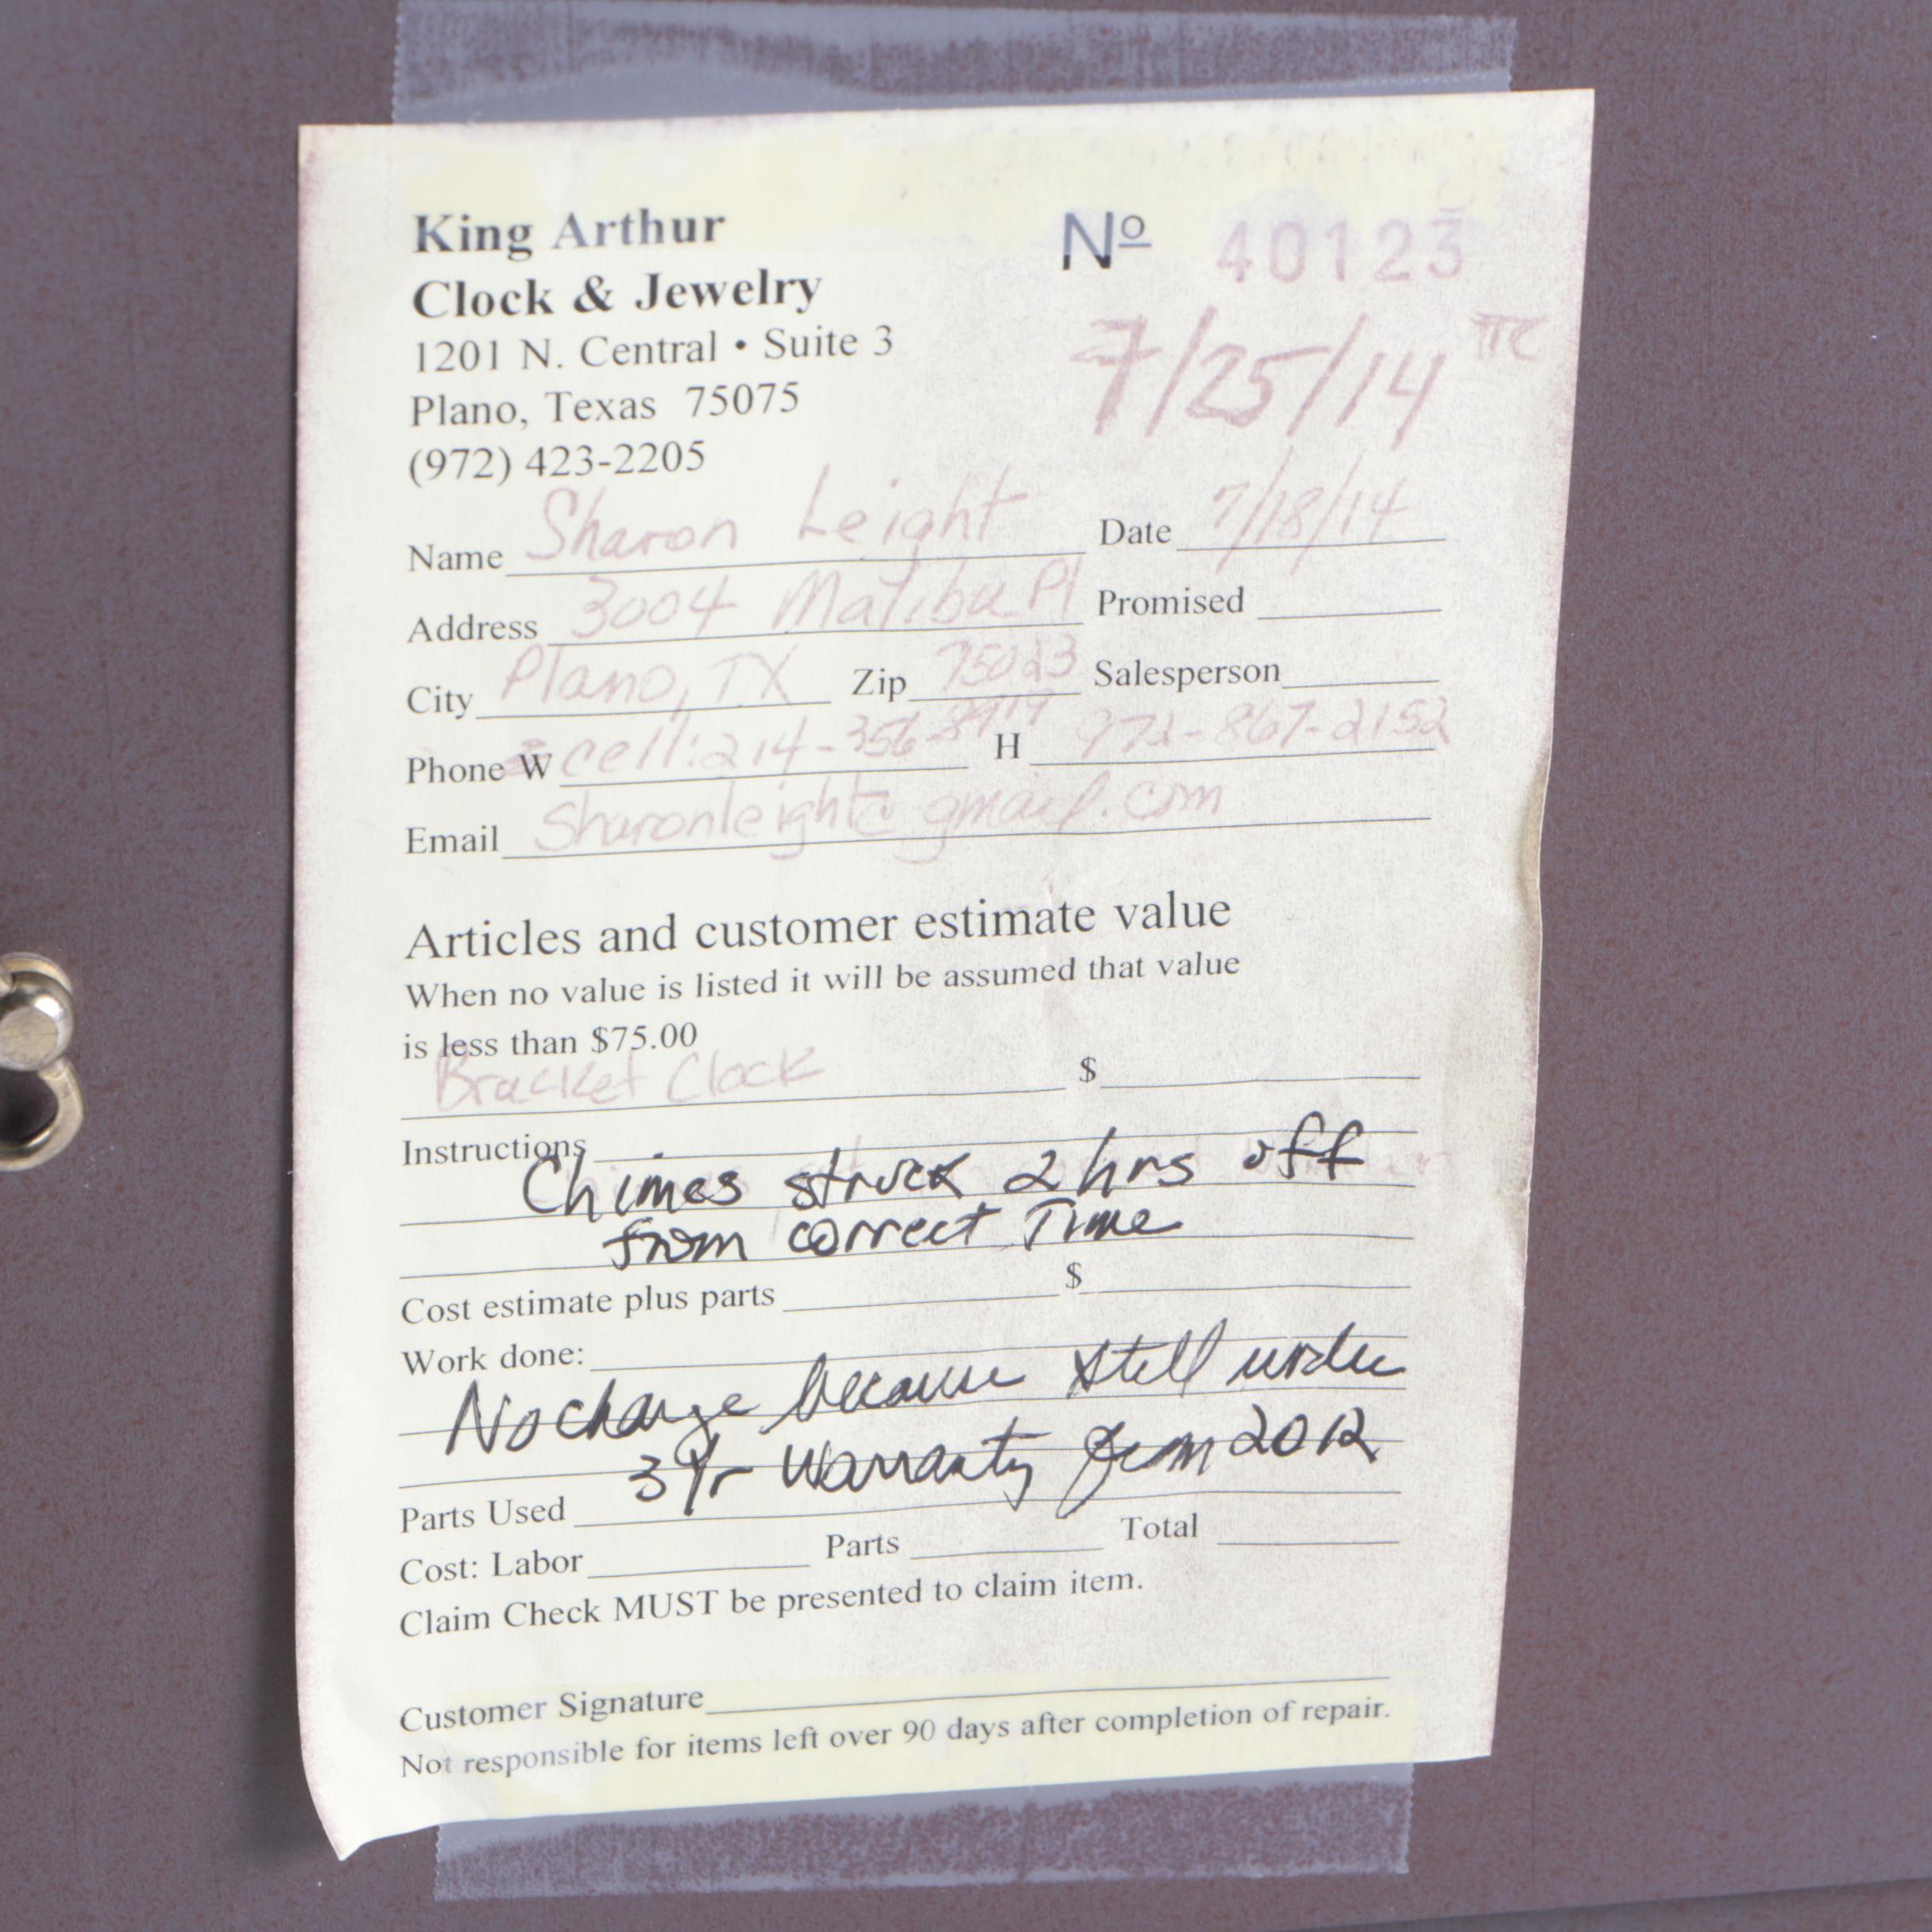 King Arthur
Clock & Jewelry
1201 N. Central • Suite 3
Plano, Texas 75075
(972) 423-2205
Nº 40123
7/25/14
Name Sharon Leight Date 7/18/14
Address 3004 Malibu Pl Promised
City Plano, TX Zip 75023 Salesperson
Phone W cell: 214-356-8919 H 972-867-2152
Email Sharonleight@gmail.com
Articles and customer estimate value
When no value is listed it will be assumed that value
is less than $75.00
Bracket Clock $
Instructions
Chimes struck 2 hrs off
from correct Time
Cost estimate plus parts $
Work done:
No charge because still under
3 Yr Warranty from 2012
Parts Used
Cost: Labor Parts Total
Claim Check MUST be presented to claim item.
Customer Signature
Not responsible for items left over 90 days after completion of repair.